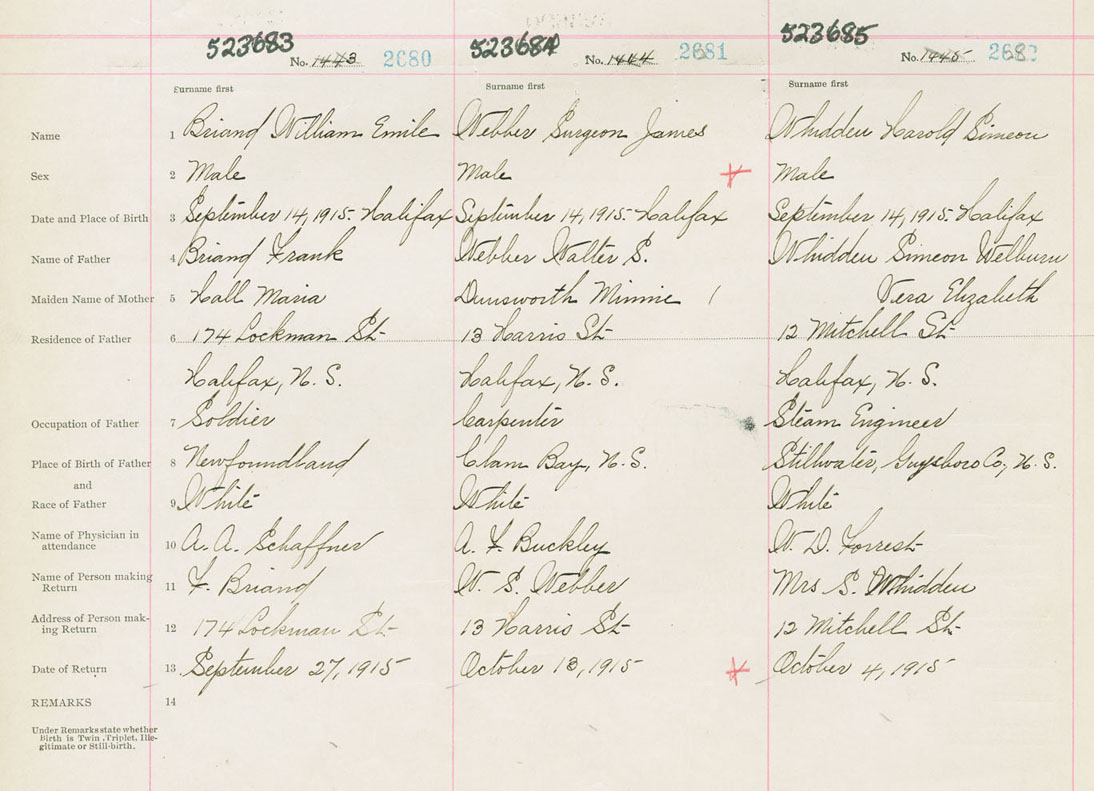 523683 523684 523685
No. 1443 2680 No. 1444 2681 No. 1445 2682
Surname first Surname first Surname first
Name 1 Briand William Emile Webber Surgeon James Whidden Harold Simeon
Sex 2 Male Male Male
Date and Place of Birth 3 September 14, 1915 - Halifax September 14, 1915 - Halifax September 14, 1915 - Halifax
Name of Father 4 Briand Frank Webber Walter S. Whidden Simeon Welburn
Maiden Name of Mother 5 Hall Maria Dunsworth Minnie Vera Elizabeth
Residence of Father 6 174 Lockman St 13 Harris St 12 Mitchell St
Halifax, N. S. Halifax, N. S. Halifax, N. S.
Occupation of Father 7 Soldier Carpenter Steam Engineer
Place of Birth of Father 8 Newfoundland Clam Bay, N. S. Stillwater, Guysboro Co, N. S.
and
Race of Father 9 White White White
Name of Physician in
attendance 10 A. A. Schaffner A. F. Buckley W. D. Forrest
Name of Person making
Return 11 F. Briand W. S. Webber Mrs S. Whidden
Address of Person mak-
ing Return 12 174 Lockman St 13 Harris St 12 Mitchell St.
Date of Return 13 September 27, 1915 October 13, 1915 October 4, 1915
REMARKS 14
Under Remarks state whether
Birth is Twin, Triplet, Ille-
gitimate or Still-birth.